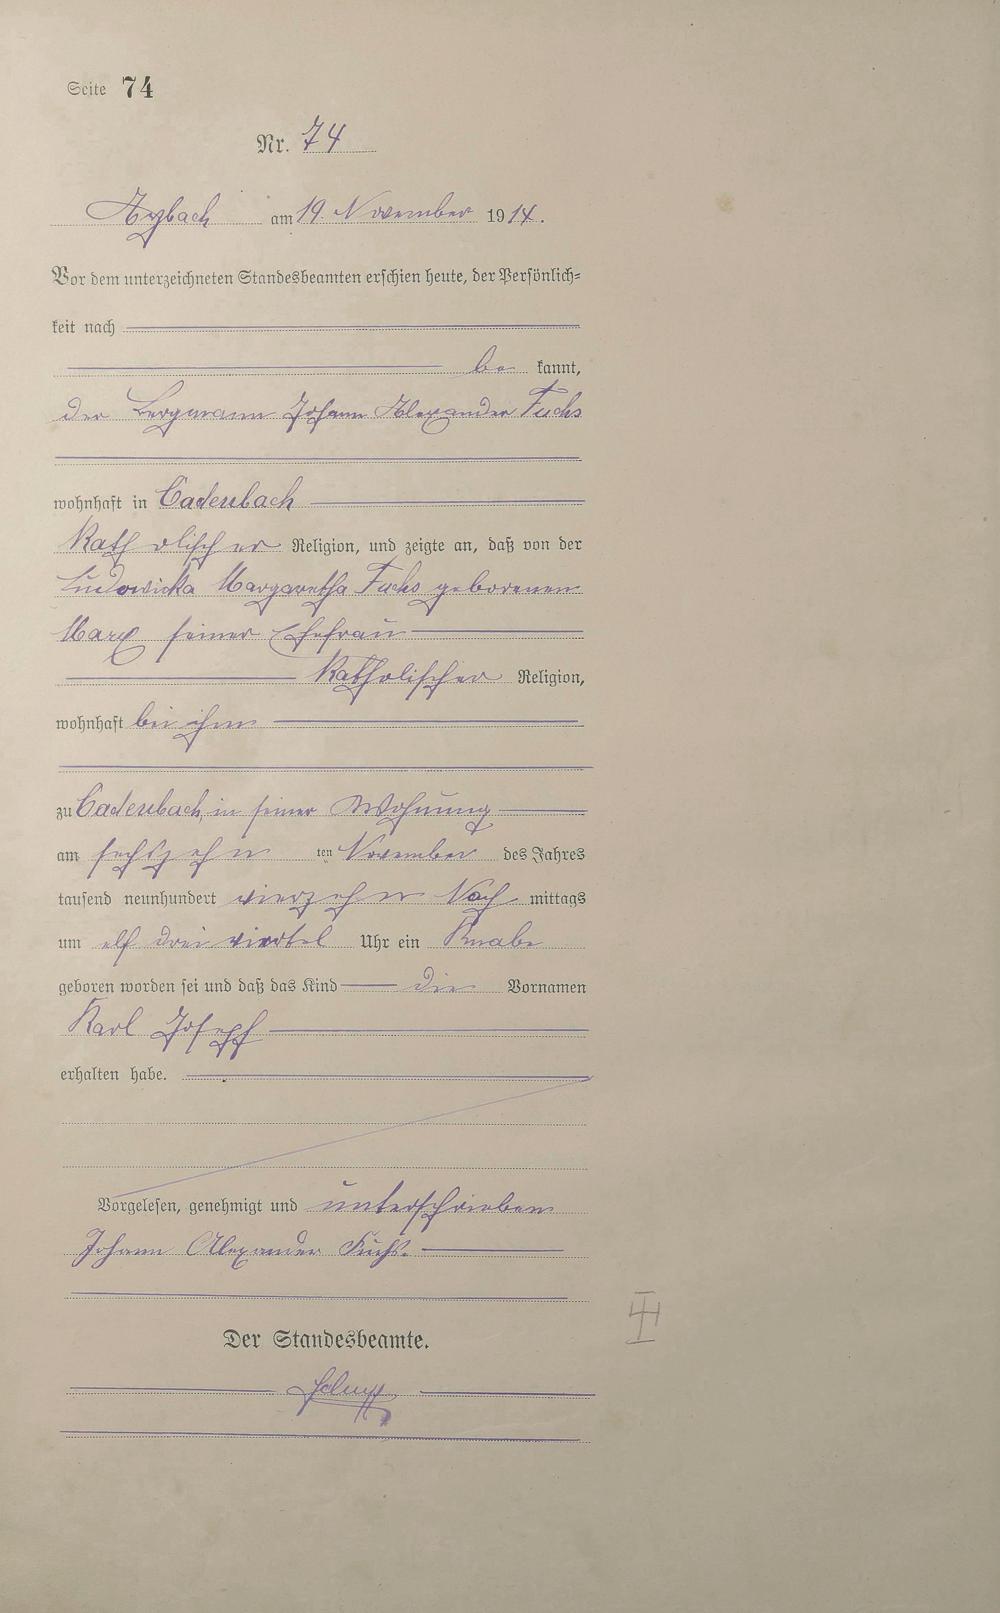 Seite 74
Nr. 74
Arzbach am 19. November 1914.
Vor dem unterzeichneten Standesbeamten erschien heute, der Persönlich=
keit nach
be kannt,
der Bergmann Johann Alexander Fuchs
wohnhaft in Cadenbach
katholischer Religion, und zeigte an, daß von der
Ludowicka Margaretha Fuchs geborenen
Marx seiner Ehefrau
katholischer Religion,
wohnhaft bei ihm
zu Cadenbach, in seiner Wohnung
am sechszehn ten November des Jahres
tausend neunhundert vierzehn Nach mittags
um elf drei viertel Uhr ein Knabe
geboren worden sei und daß das Kind die Vornamen
Karl Joseph
erhalten habe.
Vorgelesen, genehmigt und unterschrieben
Johann Alexander Fuchs.
Der Standesbeamte.